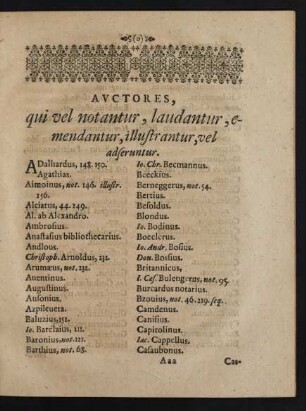 (o)
AVCTORES,
qui vel notantur, laudantur, e-
mendantur, illustrantur, vel
adseruntur.
ADalhardus, 148. 150.
Agathias.
Aimoinus, not. 146. illustr.
156.
Alciatus, 44. 149.
Al. ab Alexandro.
Ambrosius.
Anastasius bibliothecarius.
Andlous.
Christoph. Arnoldus, 231.
Arumæus, not. 232.
Auentinus.
Augustinus.
Ausonius.
Azpilcueta.
Baluzius, 151.
Io. Barclaius, 111.
Baronius, not. 127.
Barthius, not. 68.
Io. Chr. Becmannus.
Boeckius.
Berneggerus, not. 54.
Bertius.
Besoldus.
Blondus.
Io. Bodinus.
Boeclerus.
Io. Andr. Bosius.
Don. Bossius.
Britannicus,
I. Cæs. Bulengerus, not. 95.
Burcardus notarius.
Bzouius, not. 46. 219. seq.
Camdenus.
Canisius.
Capitolinus.
Iac. Cappellus.
Casaubonus.
Aaa
Cas-